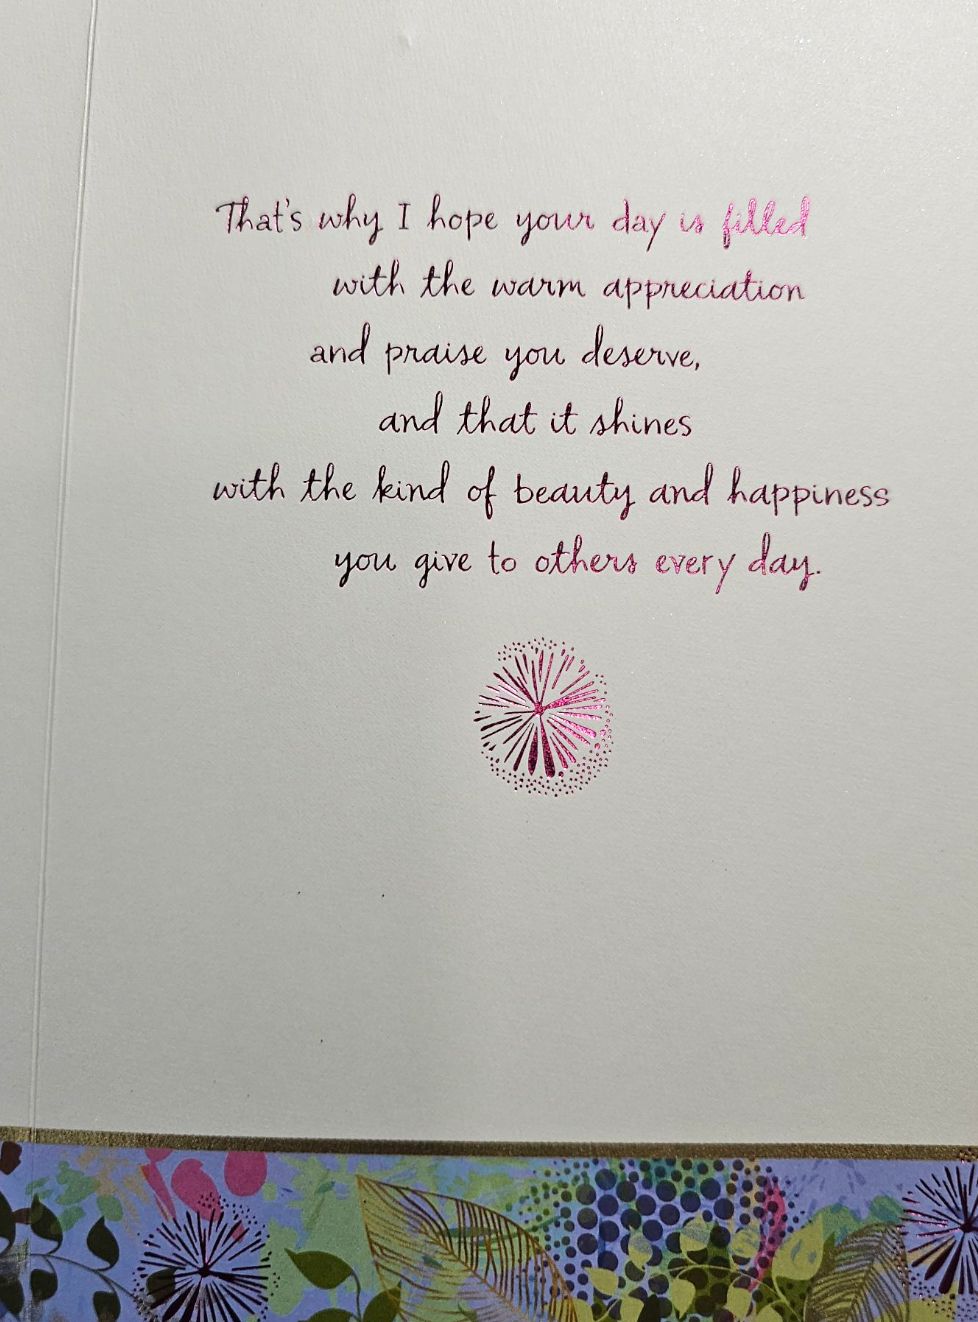 That's why I hope your day is filled
with the warm appreciation
and praise you deserve,
and that it shines
with the kind of beauty and happiness
you give to others every day.